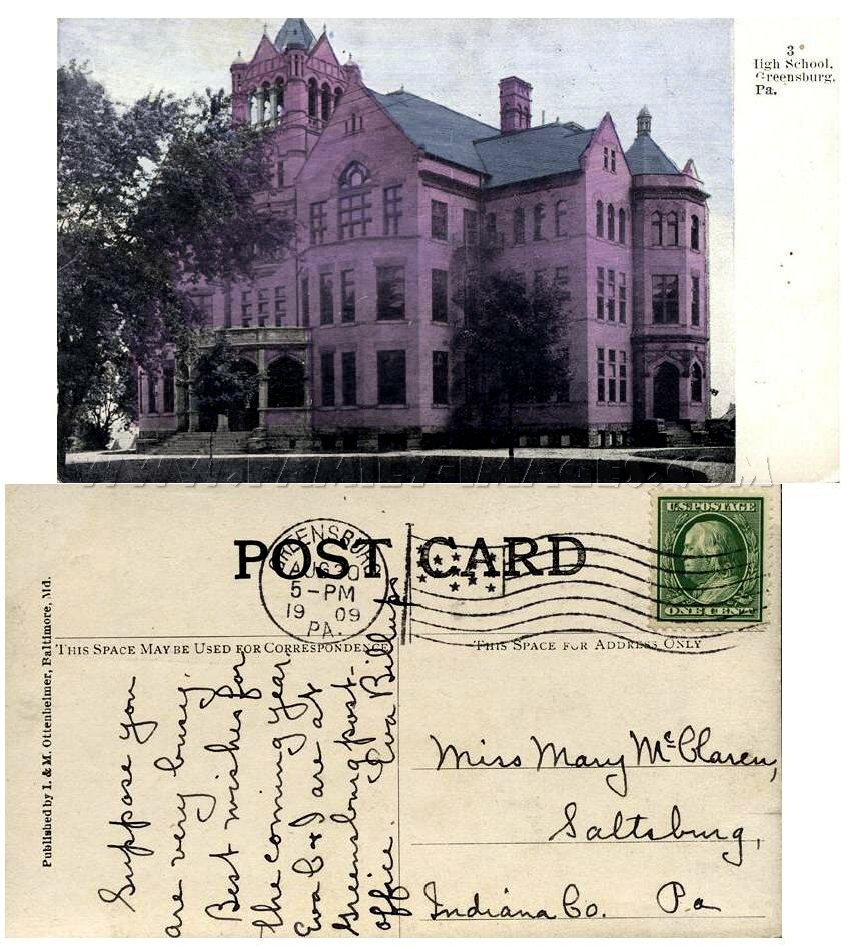 3
High School,
Greensburg,
Pa.
WWW.FAMILY-IMAGES.COM
POST CARD
GREENSBURG
AUG 30
5-PM
19 09
PA.
U.S. POSTAGE
ONE CENT
THIS SPACE MAY BE USED FOR CORRESPONDENCE
THIS SPACE FOR ADDRESS ONLY
Published by I. & M. Ottenheimer, Baltimore, Md.
Suppose you
are very busy.
Best wishes for
the coming year.
Eva C & I are at
Greensburg post-
office. Eva Billups
Miss Mary McClaren,
Saltsburg,
Indiana Co. Pa